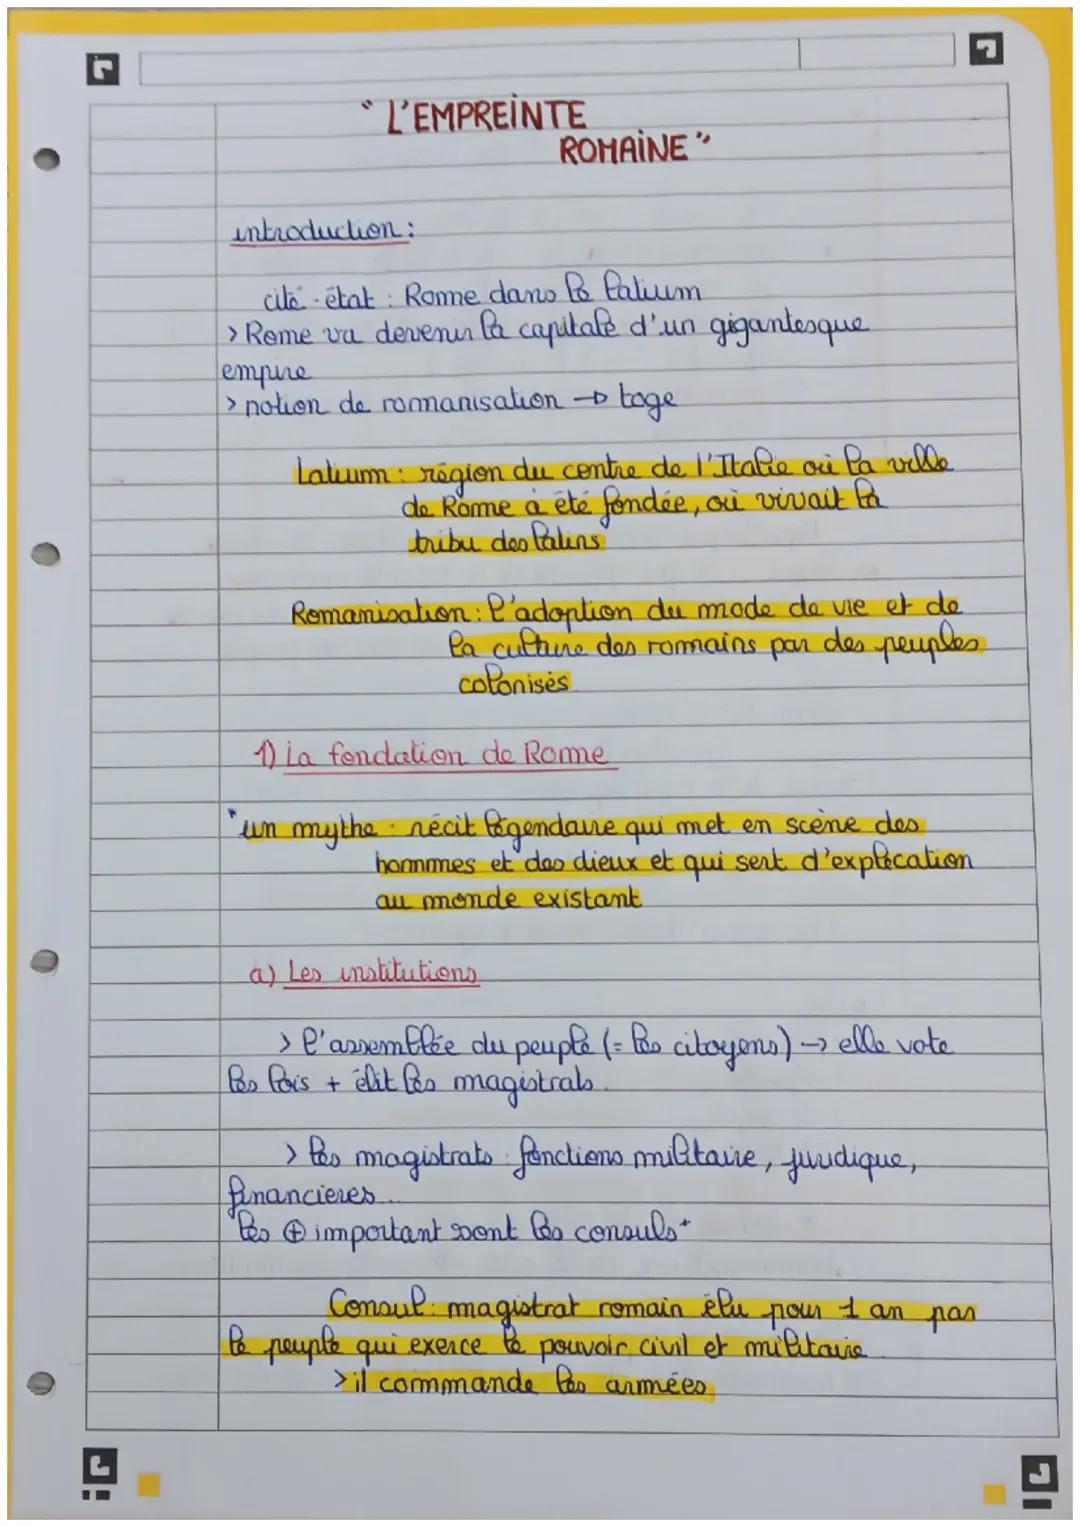 "L'EMPREINTE
ROMAINE"
introduction :
cité-état : Rome dans le Latium
> Rome va devenir la capitale d'un gigantesque
empire
> notion de romanisation → toge
Latium : région du centre de l'Italie où la ville
de Rome a été fondée, où vivait la
tribu des Latins
Romanisation : l'adoption du mode de vie et de
la culture des romains par des peuples
colonisés
1) La fondation de Rome
*un mythe : récit légendaire qui met en scène des
hommes et des dieux et qui sert d'explication
au monde existant
a) Les institutions
> l'assemblée du peuple (= les citoyens) → elle vote
les lois + élit les magistrats.
> les magistrats : fonctions militaire, juridique,
financières...
les ⊕ important sont les consuls+
Consul : magistrat romain élu pour 1 an par
le peuple qui exerce le pouvoir civil et militaire
> il commande les armées